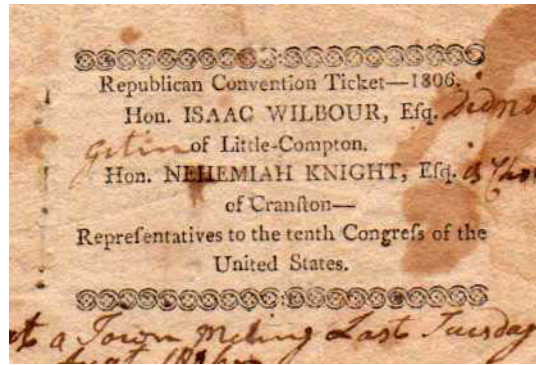 Republican Convention Ticket—1806.
Hon. ISAAC WILBOUR, Eſq. Did no
get in of Little-Compton.
Hon. NEHEMIAH KNIGHT, Eſq. is Cho
of Cranſton—
Repreſentatives to the tenth Congreſs of the
United States.
at a Town Meting Last Tuesday